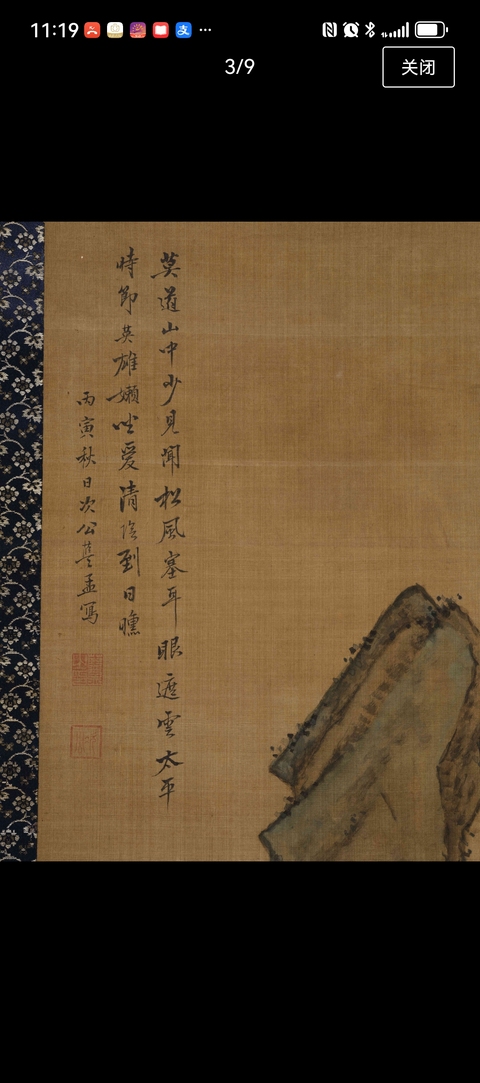 11:19
3/9
关闭
莫道山中少見聞松風塞耳眼遮雲太平
時節英雄嬾坐愛清陰到日曛
丙寅秋日次公孟寫